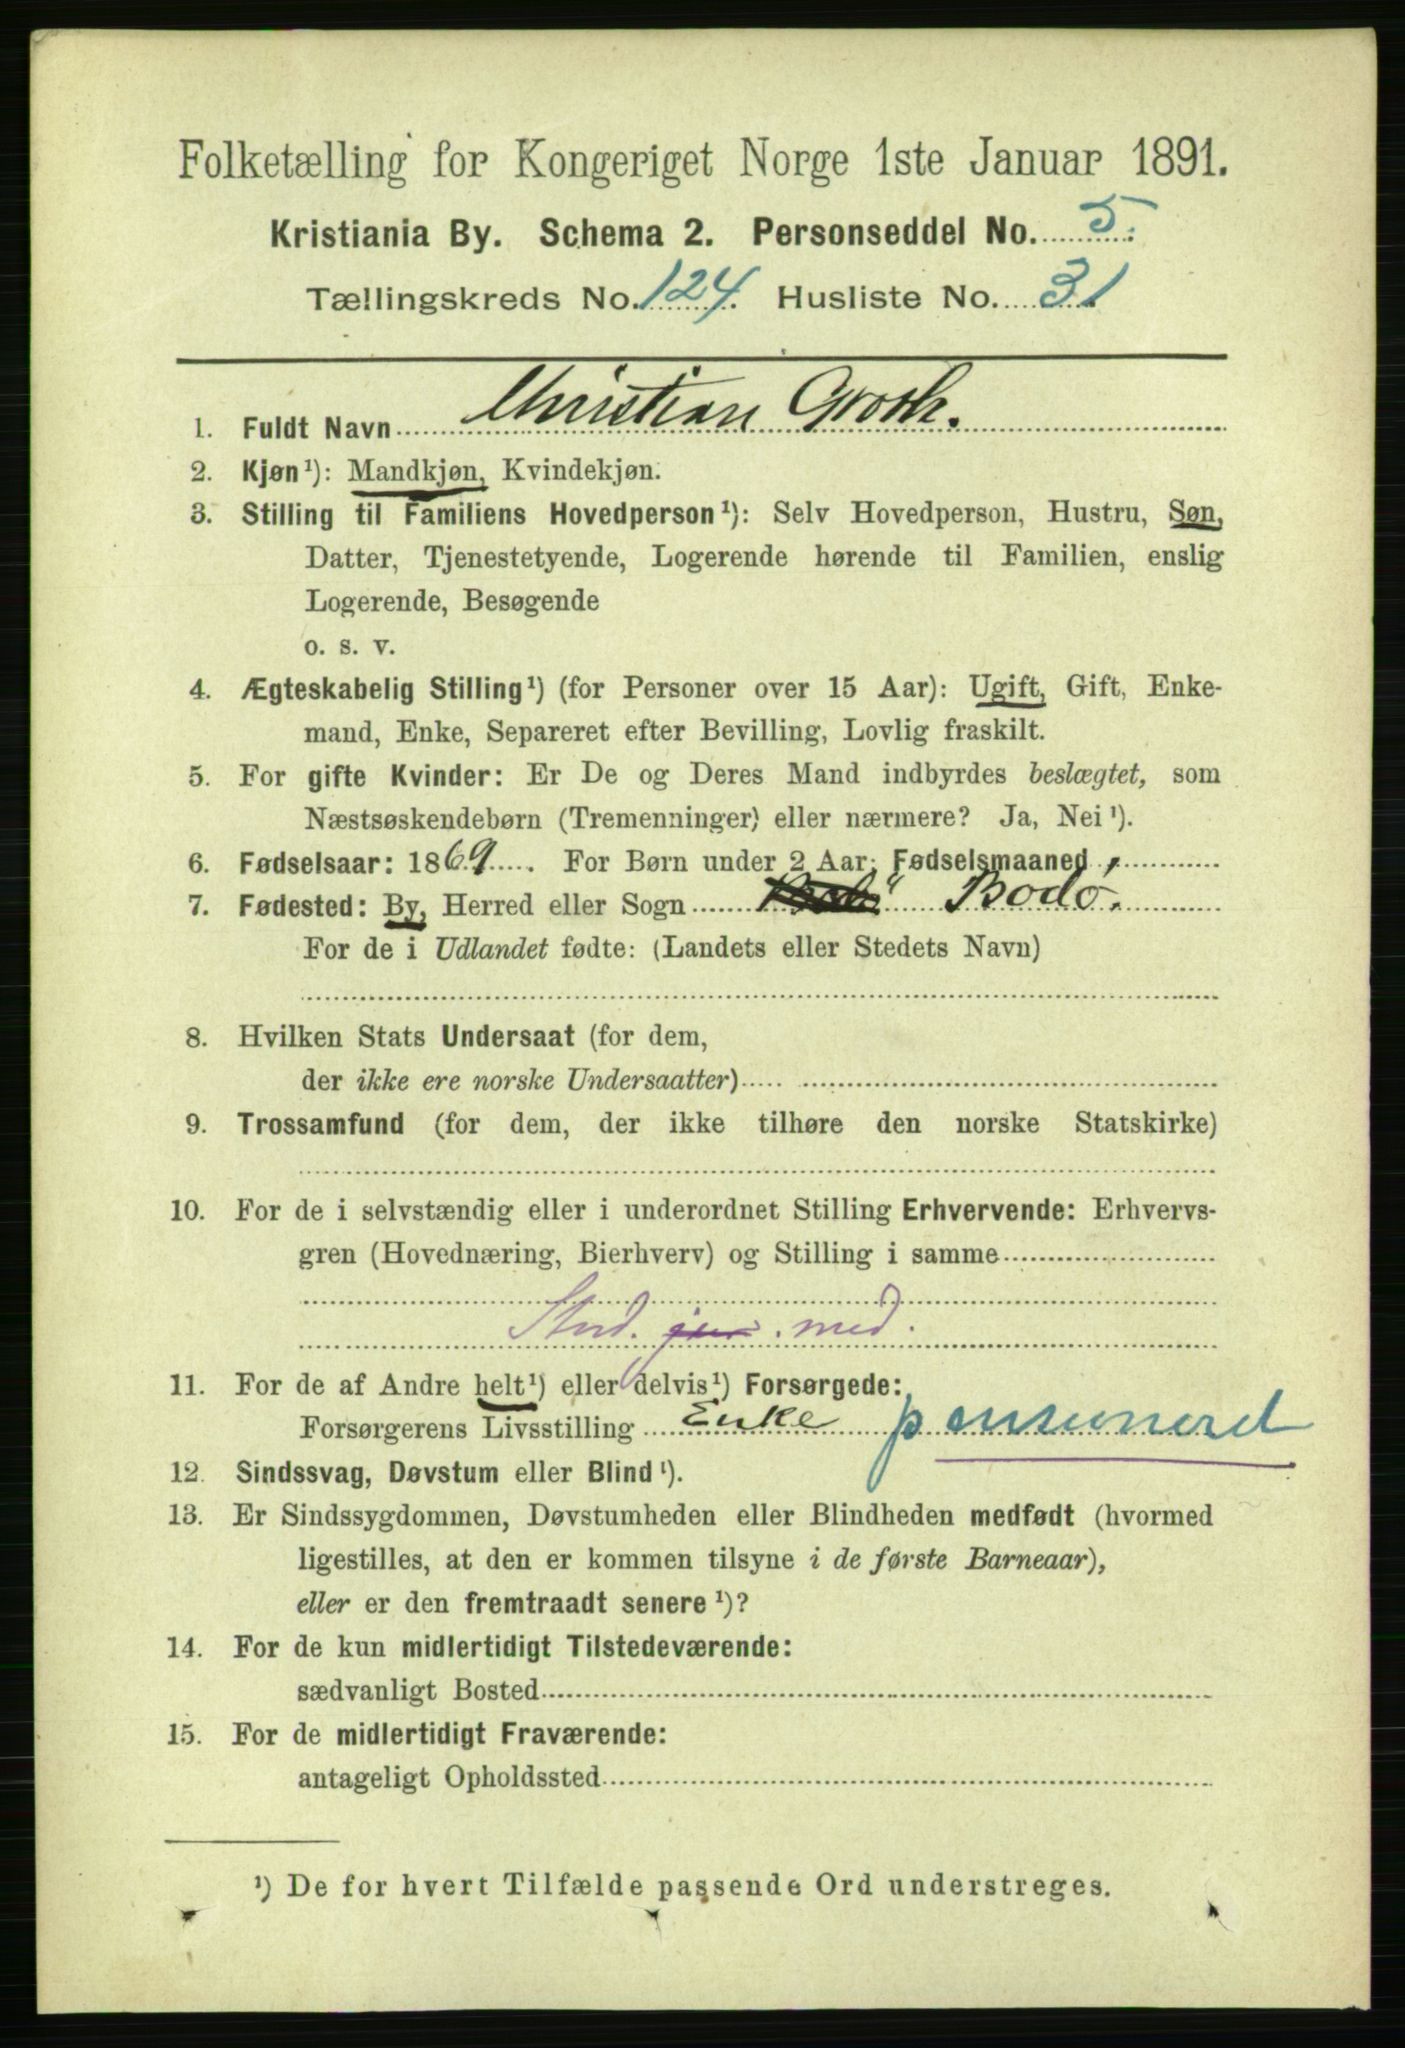 Folketælling for Kongeriget Norge 1ste Januar 1891.
Kristiania By. Schema 2. Personseddel No. 5.
Tællingskreds No. 124. Husliste No. 31.
1. Fuldt Navn Christian Groth.
2. Kjøn¹): Mandkjøn, Kvindekjøn.
3. Stilling til Familiens Hovedperson¹): Selv Hovedperson, Hustru, Søn,
Datter, Tjenestetyende, Logerende hørende til Familien, enslig
Logerende, Besøgende
o. s. v.
4. Ægteskabelig Stilling¹) (for Personer over 15 Aar): Ugift, Gift, Enke-
mand, Enke, Separeret efter Bevilling, Lovlig fraskilt.
5. For gifte Kvinder: Er De og Deres Mand indbyrdes beslægtet, som
Næstsøskendebørn (Tremenninger) eller nærmere? Ja, Nei¹).
6. Fødselsaar: 1869. For Børn under 2 Aar: Fødselsmaaned
7. Fødested: By, Herred eller Sogn Bodö.
For de i Udlandet fødte: (Landets eller Stedets Navn)
8. Hvilken Stats Undersaat (for dem,
der ikke ere norske Undersaatter)
9. Trossamfund (for dem, der ikke tilhøre den norske Statskirke)
10. For de i selvstændig eller i underordnet Stilling Erhvervende: Erhvervs-
gren (Hovednæring, Bierhverv) og Stilling i samme
Stud. jur. med.
11. For de af Andre helt¹) eller delvis¹) Forsørgede:
Forsørgerens Livsstilling Enke pensioneret
12. Sindssvag, Døvstum eller Blind¹).
13. Er Sindssygdommen, Døvstumheden eller Blindheden medfødt (hvormed
ligestilles, at den er kommen tilsyne i de første Barneaar),
eller er den fremtraadt senere¹)?
14. For de kun midlertidigt Tilstedeværende:
sædvanligt Bosted
15. For de midlertidigt Fraværende:
antageligt Opholdssted
¹) De for hvert Tilfælde passende Ord understreges.